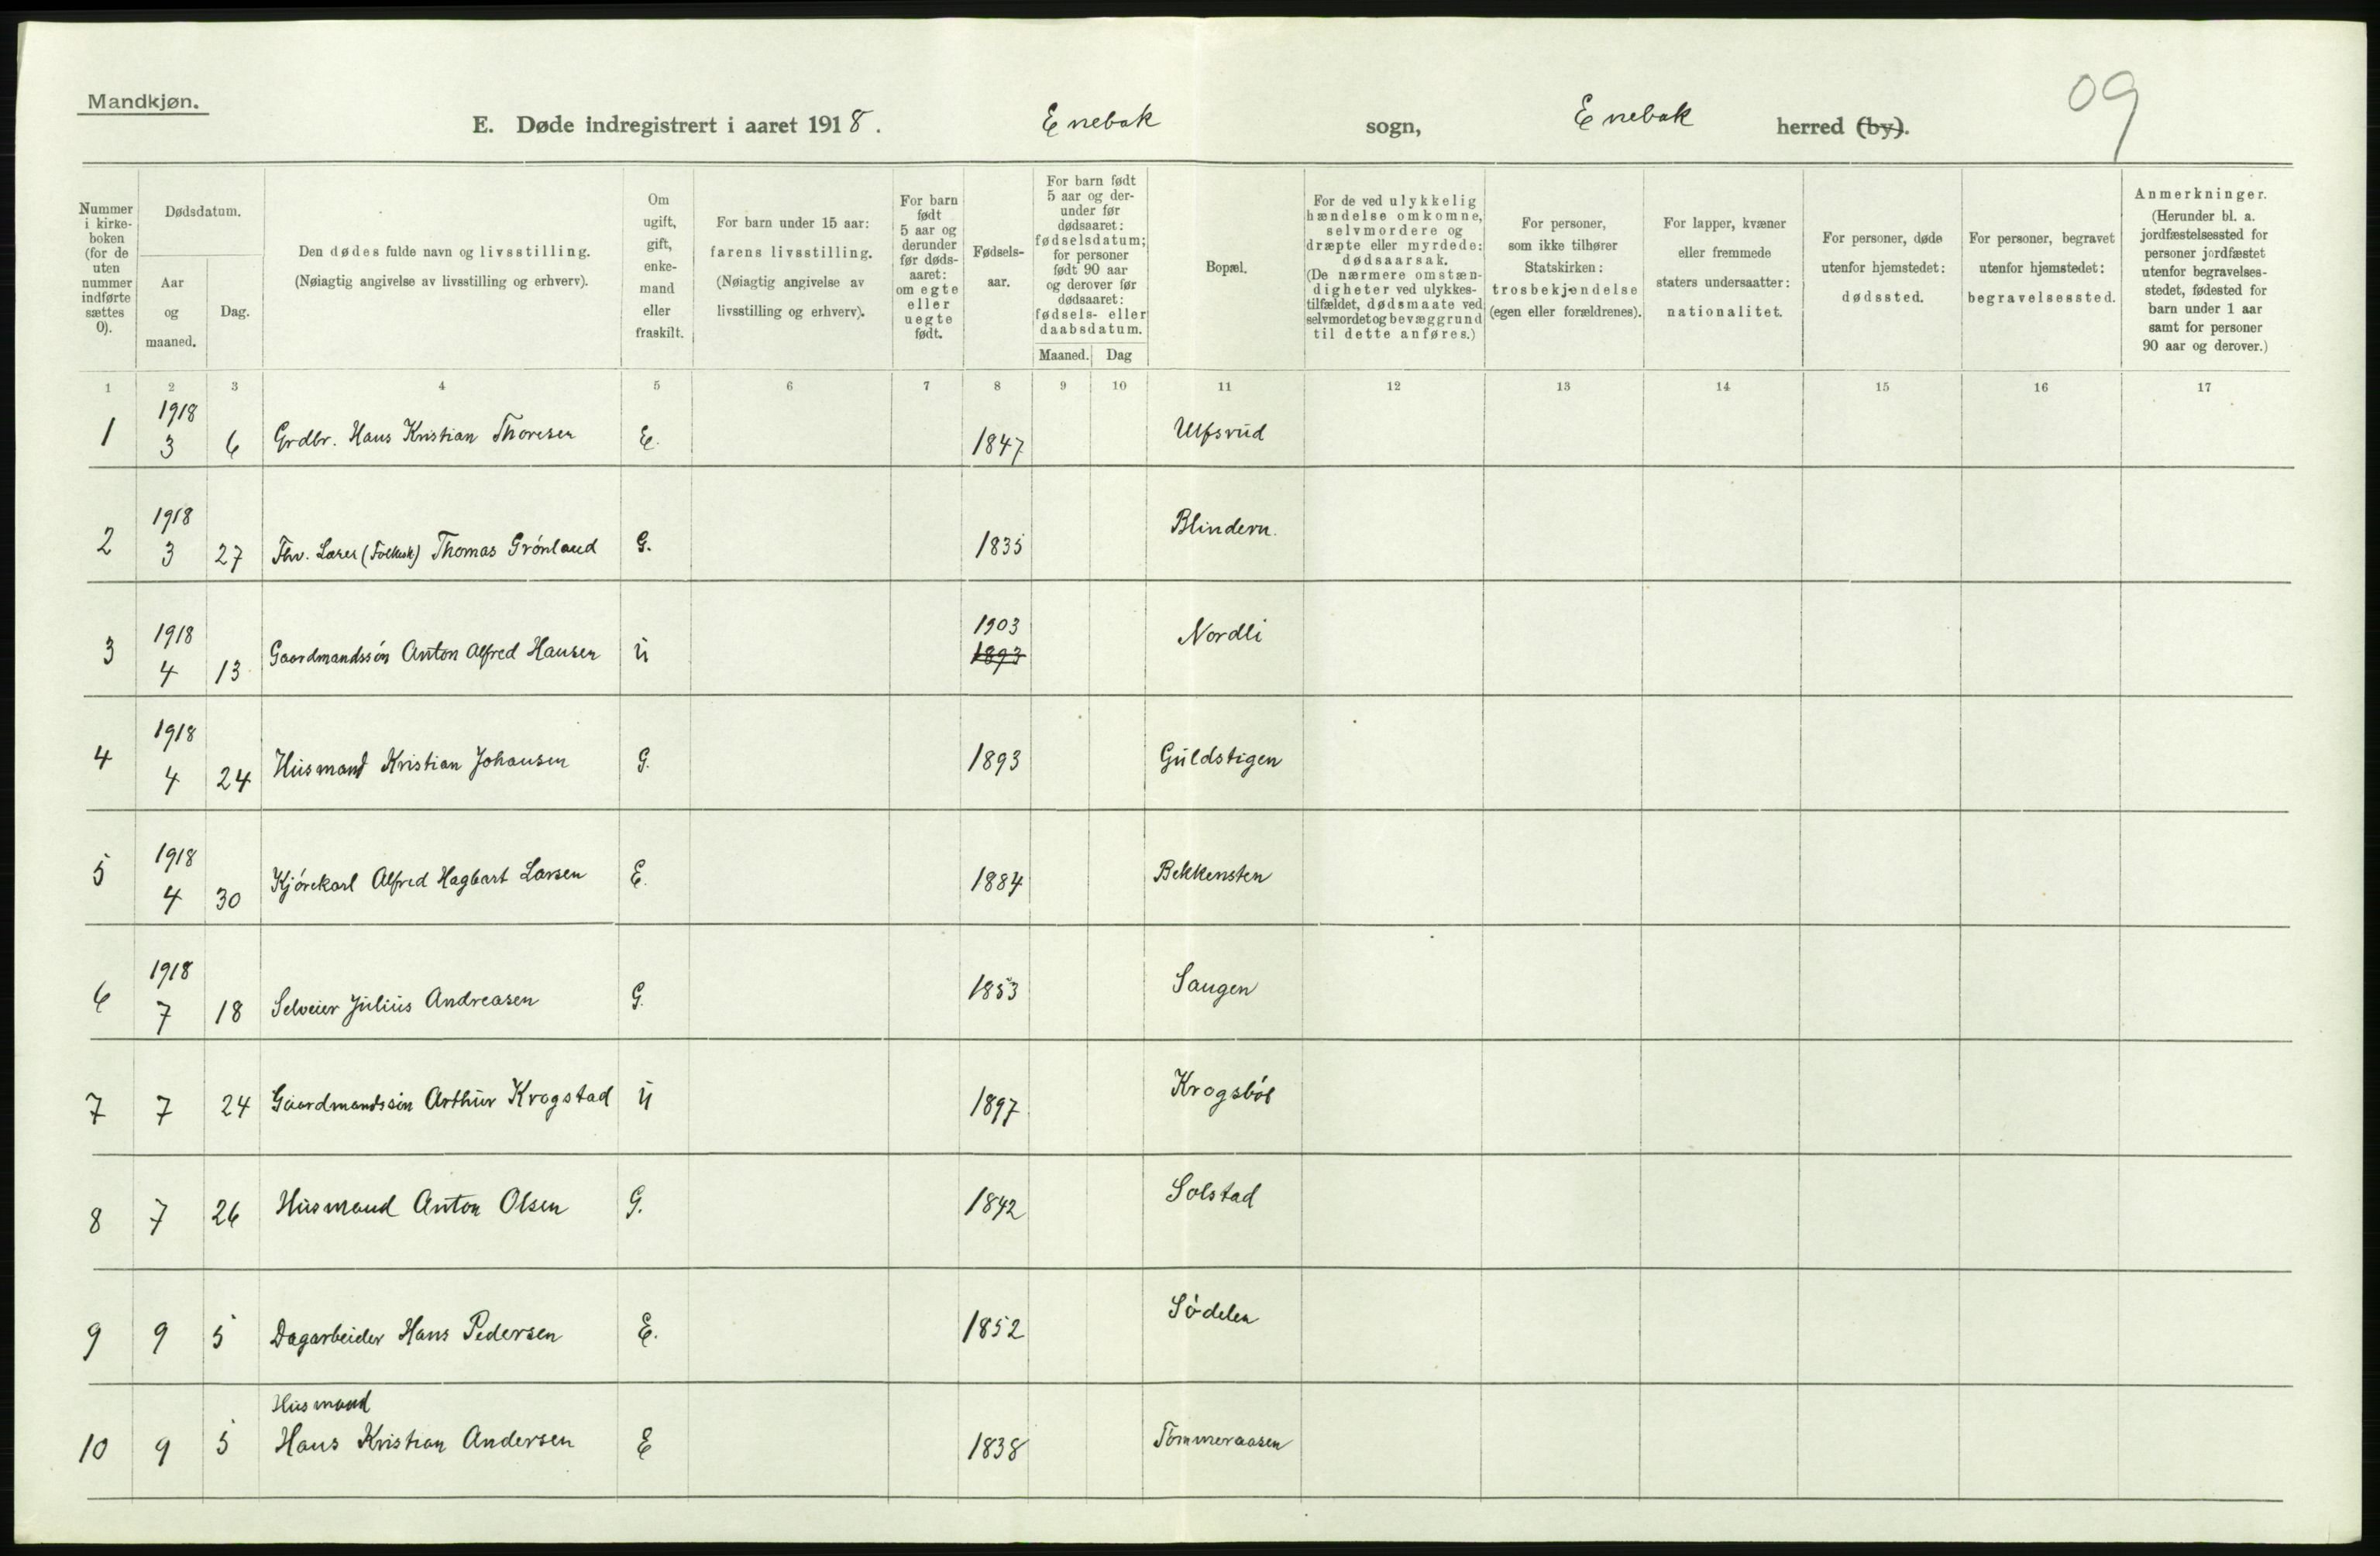 Mandkjøn.
E. Døde indregistrert i aaret 1918. Enebak sogn, Enebak herred (by).
09
Nummer i kirke-boken (for de uten nummer indførte sættes 0).
Dødsdatum.
Aar og maaned.
Dag.
Den dødes fulde navn og livsstilling.
(Nøiagtig angivelse av livsstilling og erhverv).
Om ugift, gift, enke-mand eller fraskilt.
For barn under 15 aar:
farens livsstilling.
(Nøiagtig angivelse av
livsstilling og erhverv).
For barn født 5 aar og derunder før døds-aaret: om egte eller uegte født.
Fødsels-aar.
For barn født 5 aar og der-under før dødsaaret: fødselsdatum; for personer født 90 aar og derover før dødsaaret: fødsels- eller daabsdatum.
Maaned. Dag
Bopæl.
For de ved ulykkelig hændelse omkomne, selvmordere og dræpte eller myrdede: dødsaarsak. (De nærmere omstæn-digheter ved ulykkes-tilfældet, dødsmaate ved selvmordet og bevæggrund til dette anføres.)
For personer,
som ikke tilhører
Statskirken:
trosbekjendelse
(egen eller forældrenes).
For lapper, kvæner
eller fremmede
staters undersaatter:
nationalitet.
For personer, døde
utenfor hjemstedet:
dødssted.
For personer, begravet
utenfor hjemstedet:
begravelsessted.
Anmerkninger.
(Herunder bl. a. jordfæstelsessted for personer jordfæstet utenfor begravelses-stedet, fødested for barn under 1 aar samt for personer 90 aar og derover.)
1 2 3 4 5 6 7 8 9 10 11 12 13 14 15 16 17
1 1918 3 6 Grdbr. Hans Kristian Thoresen E. 1847 Ulfsrud
2 1918 3 27 Fhv. Lærer (Folkesk) Thomas Grönland G. 1835 Blindern.
3 1918 4 13 Gaardmandssön Anton Alfred Hansen U 1903 1893 Nordli
4 1918 4 24 Husmand Kristian Johansen G. 1893 Guldstigen
5 1918 4 30 Kjörekarl Alfred Hagbart Larsen E. 1884 Bekkensten
6 1918 7 18 Selveier Julius Andreasen G. 1853 Saugen
7 7 24 Gaardmandssön Arthur Krogstad U 1897 Krogsböl
8 7 26 Husmand Anton Olsen G. 1842 Solstad
9 9 5 Dagarbeider Hans Pedersen E. 1852 Södelen
Husmand
10 9 5 Hans Kristian Andersen E 1838 Tömmeraasen